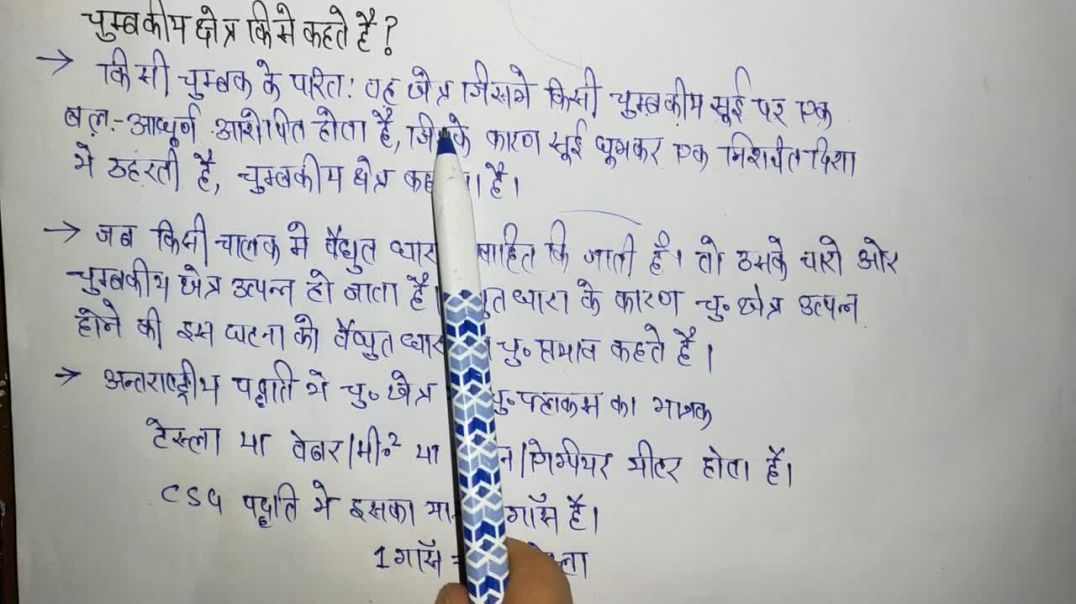 चुम्बकीय क्षेत्र किसे कहते है?
→ किसी चुम्बक के परितः वह क्षेत्र जिसमे किसी चुम्बकीय सुई पर एक
बल-आघूर्ण आरोपित होता है, जिसके कारण सुई घूमकर एक निश्चित दिशा
मे ठहरती है, चुम्बकीय क्षेत्र है।
→ जब किसी चालक मे वैधुत धारा कि जाती है। तो उसके चारो ओर
चुम्बकीय क्षेत्र उत्पन्न हो जाता है। धारा के कारण चु॰ क्षेत्र उत्पन्न
होने की इस घटना को वैधुत चु॰ प्रभाव कहते है।
→ अन्तराष्ट्रीय पद्धति मे चु॰ क्षेत्र का मात्रक
टेस्ला या वेबर/मी॰² या मीटर होता है।
CSG पद्धति मे इसका गॉस है।
1 गॉस =